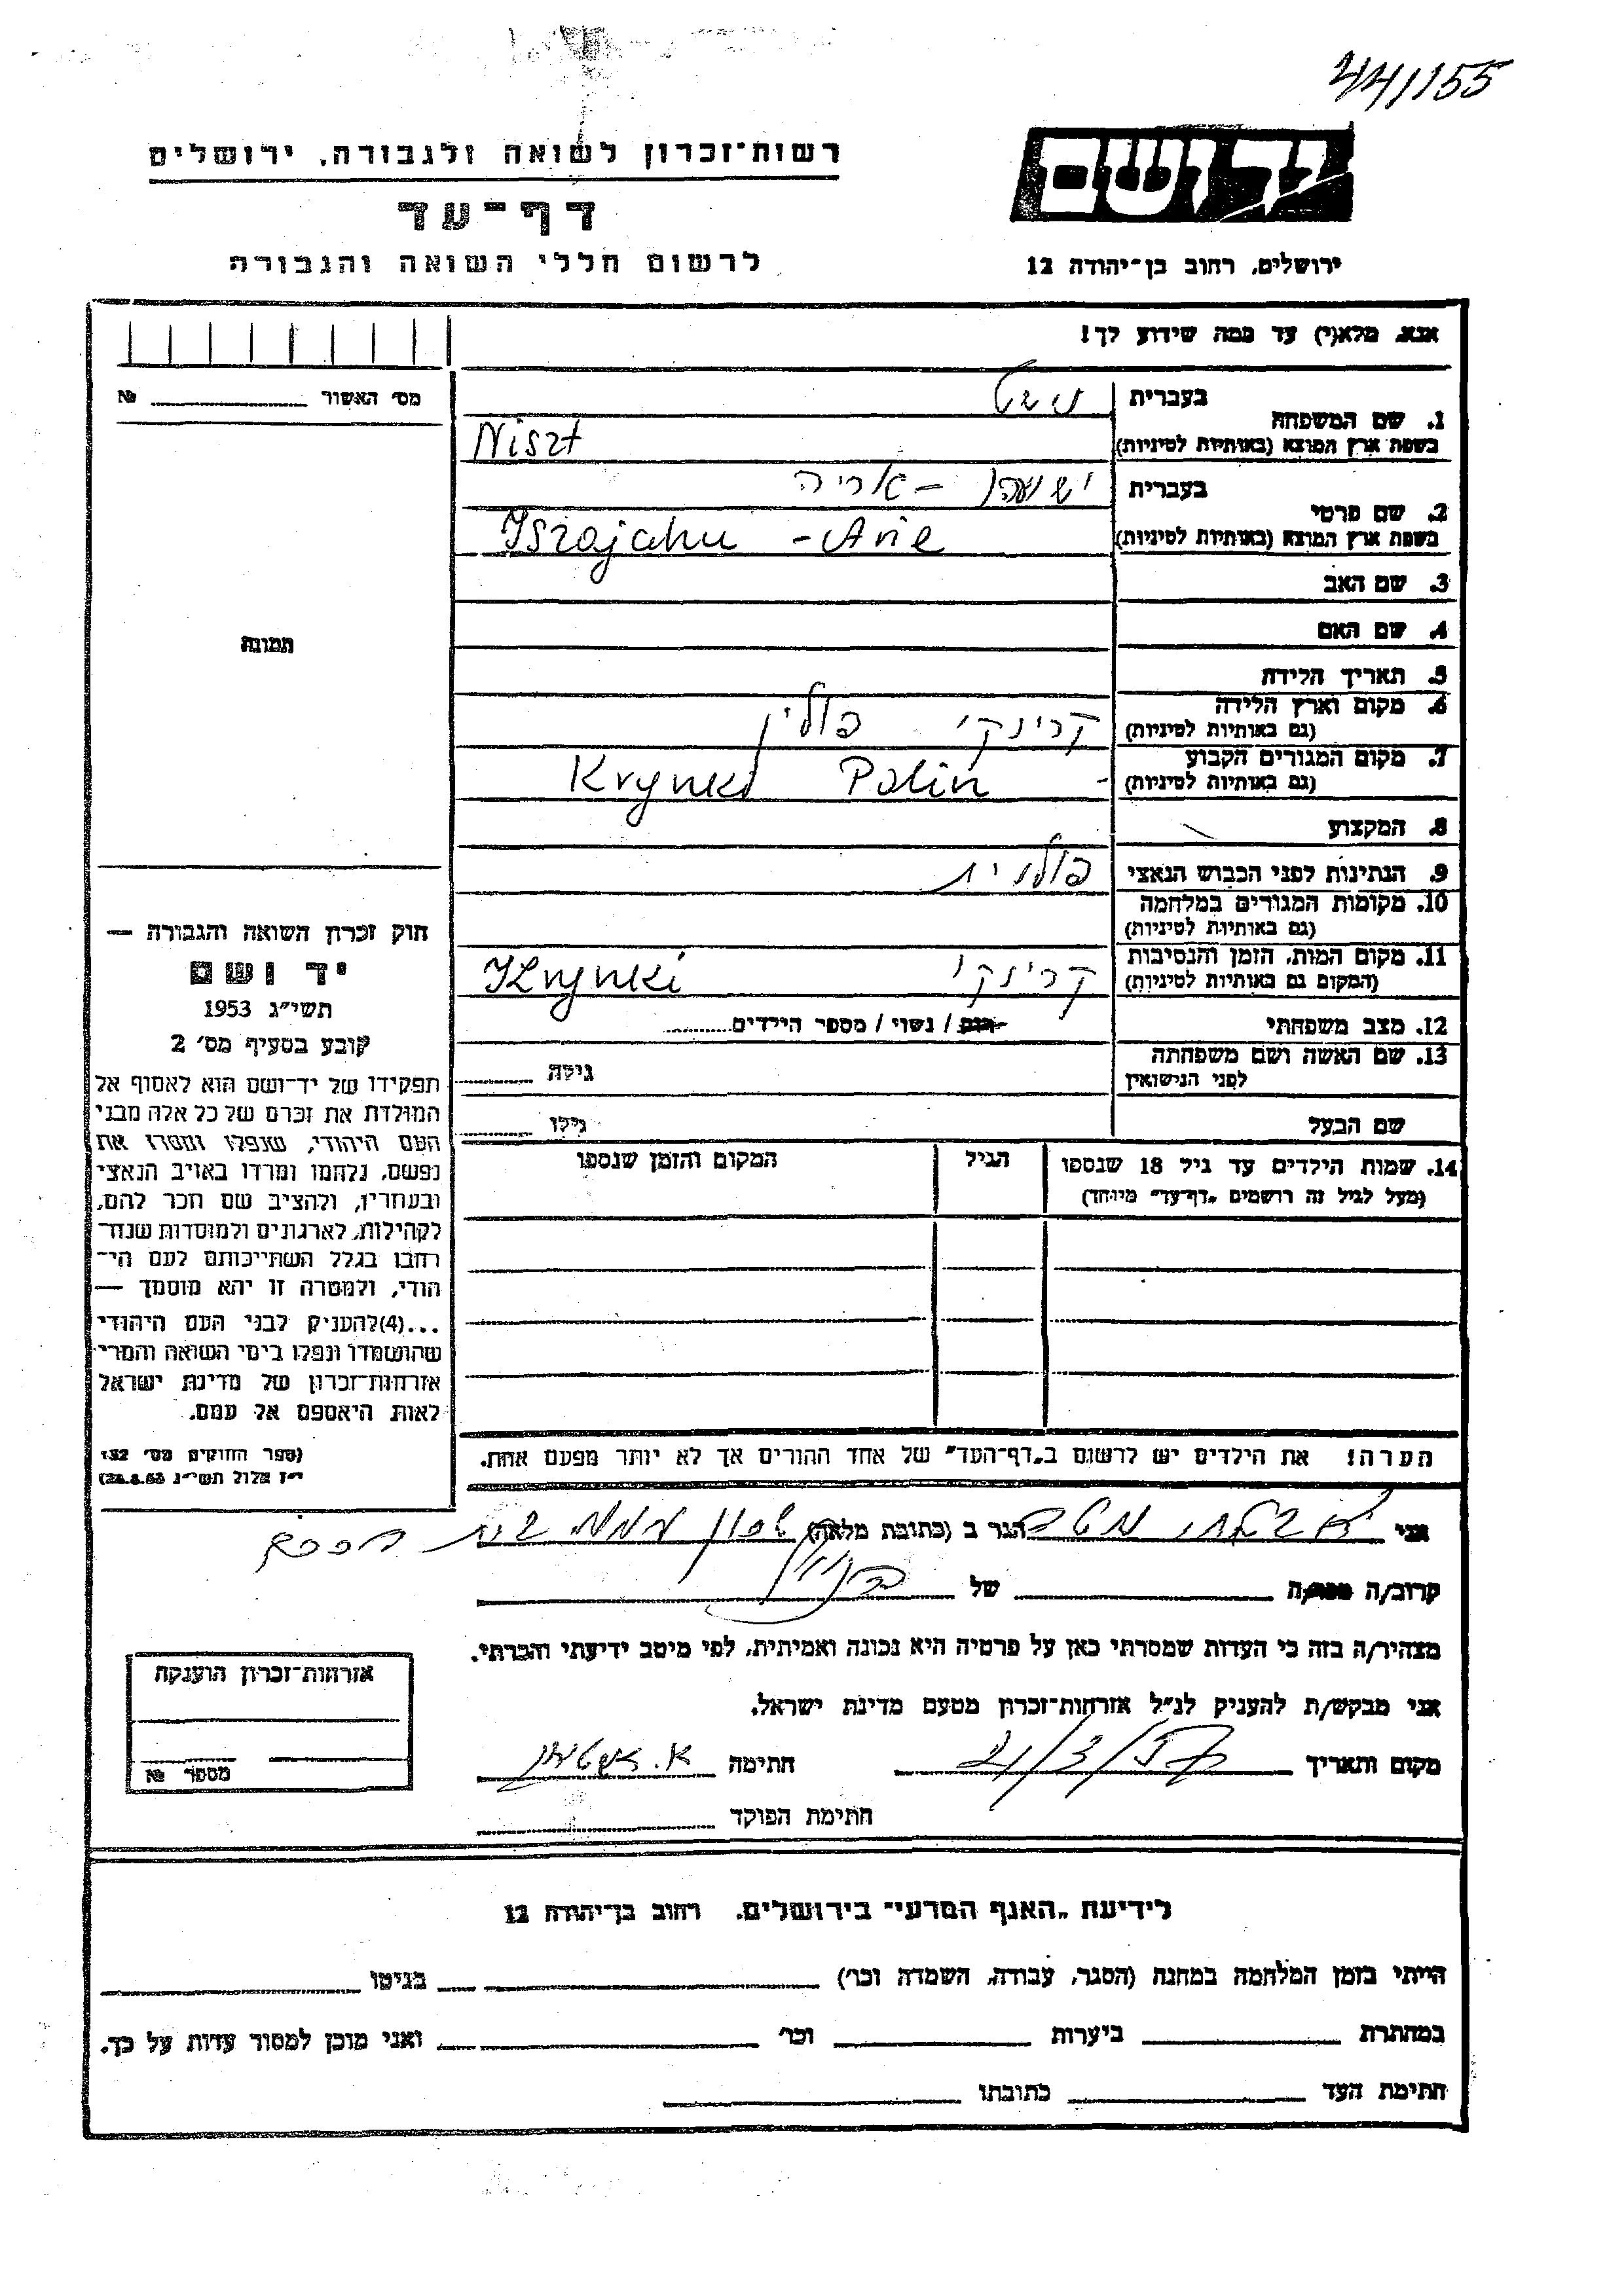 44/155
רשות־זכרון לשואה ולגבורה, ירושלים
דף־עד
לרשום חללי השואה והגבורה
יד ושם
ירושלים, רחוב בן־יהודה 12
אנא, מלא(י) עד כמה שידוע לך!
מס׳ האשור № 
1. שם המשפחה
בעברית
בשפת ארץ המוצא (באותיות לטיניות)
Niszt
2. שם פרטי
בעברית ישעהו - אריה
בשפת ארץ המוצא (באותיות לטיניות)
Iszajahu - Arie
3. שם האב
4. שם האם
תמונה
5. תאריך הלידה
6. מקום וארץ הלידה
(גם באותיות לטיניות)
קרינקי פולין
7. מקום המגורים הקבוע
(גם באותיות לטיניות)
Krynki Polin
8. המקצוע
9. הנתינות לפני הכבוש הנאצי פולנית
10. מקומות המגורים במלחמה
(גם באותיות לטיניות)
11. מקום המות, הזמן והנסיבות
(המקום גם באותיות לטיניות)
קרינקי Krynki
12. מצב משפחתי רווק / נשוי / מספר הילדים
13. שם האשה ושם משפחתה
לפני הנישואין
גילה
שם הבעל
גילו
14. שמות הילדים עד גיל 18 שנספו
(מעל לגיל זה רושמים „דף־עד״ מיוחד)
הגיל
המקום והזמן שנספו
חוק זכרון השואה והגבורה —
יד ושם
תשי״ג 1953
קובע בסעיף מס׳ 2
תפקידו של יד־ושם הוא לאסוף אל
המולדת את זכרם של כל אלה מבני
העם היהודי, שנפלו ומסרו את
נפשם, נלחמו ומרדו באויב הנאצי
ובעוזריו, ולהציב שם וזכר להם,
לקהילות, לארגונים ולמוסדות שנח־
רבו בגלל השתייכותם לעם הי־
הודי, ולמטרה זו יהא מוסמך —
...(4)להעניק לבני העם היהודי
שהושמדו ונפלו בימי השואה והמרי
אזרחות־זכרון של מדינת ישראל
לאות היאספם אל עמם.
(ספר החוקים מס׳ 132
י״ז אלול תשי״ג 28.8.53)
הערה! את הילדים יש לרשום ב„דף־העד״ של אחד ההורים אך לא יותר מפעם אחת.
אני הגר ב (כתובת מלאה)
קרוב/ה מכר/ה של
מצהיר/ה בזה כי העדות שמסרתי כאן על פרטיה היא נכונה ואמיתית, לפי מיטב ידיעתי והכרתי.
אני מבקש/ת להעניק לנ״ל אזרחות־זכרון מטעם מדינת ישראל.
מקום ותאריך 21/3/57 חתימה
חתימת הפוקד
אזרחות־זכרון הוענקה
מספר №
לידיעת „האגף המדעי״ בירושלים, רחוב בן־יהודה 12
הייתי בזמן המלחמה במחנה (הסגר, עבודה, השמדה וכו׳) בגיטו
במחתרת ביערות וכו׳ ואני מוכן למסור עדות על כך.
חתימת העד כתובתו